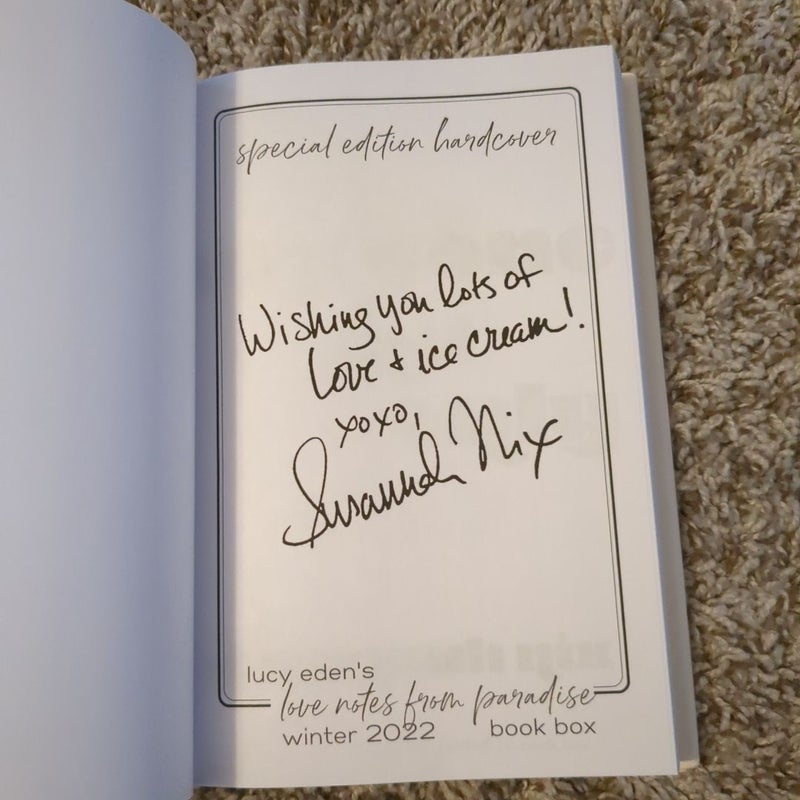 special edition hardcover
Wishing you lots of
love + ice cream!
xoxo,
Susannah Nix
lucy eden's
love notes from paradise
winter 2022 book box